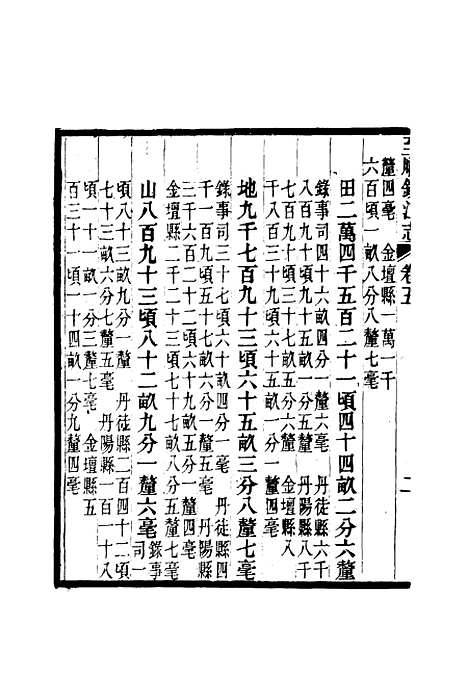 至順鎮江志 卷五 二
釐四毫 金壇縣一萬一千
六百頃一畝八分八釐七毫
田二萬四千五百二十一頃四十四畝二分六釐
錄事司四十六畝四分一釐六毫 丹徒縣六千
八百九十頃九十五畝一分五釐 丹陽縣八千
七百九十頃一十七畝五分六釐 金壇縣八
千八百三十九頃 十五畝一分 釐四毫
地九千七百九十三頃六十五畝三分八釐七毫
錄事司三十七頃六十畝四分一毫 丹徒縣四
千一百九頃五十七畝一分五毫 丹陽縣
三千六百二十二頃六十九畝五分 毫
金壇縣二千二十三頃七十七畝八分五釐七毫
山八百九十三頃八十二畝九分一釐六毫 錄事司一
頃八十三畝九分一釐 丹徒縣二百四十二頃
七十三畝六分七釐五毫 丹陽縣一百一十八
頃一十一畝一分三釐七毫 金壇縣五
百三十一頃一十四畝一分九釐四毫